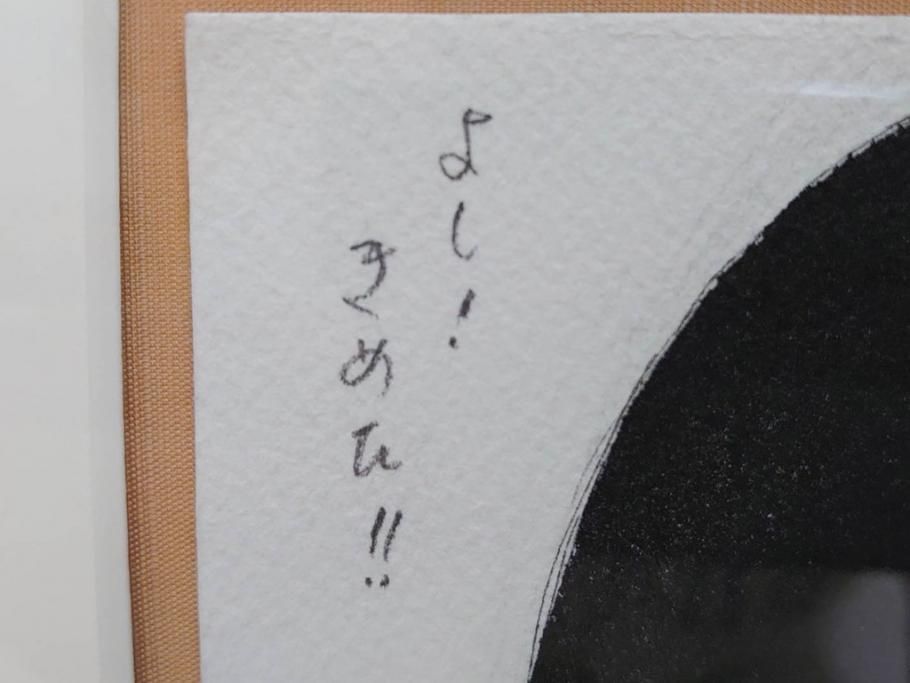 よし!
きめた!!